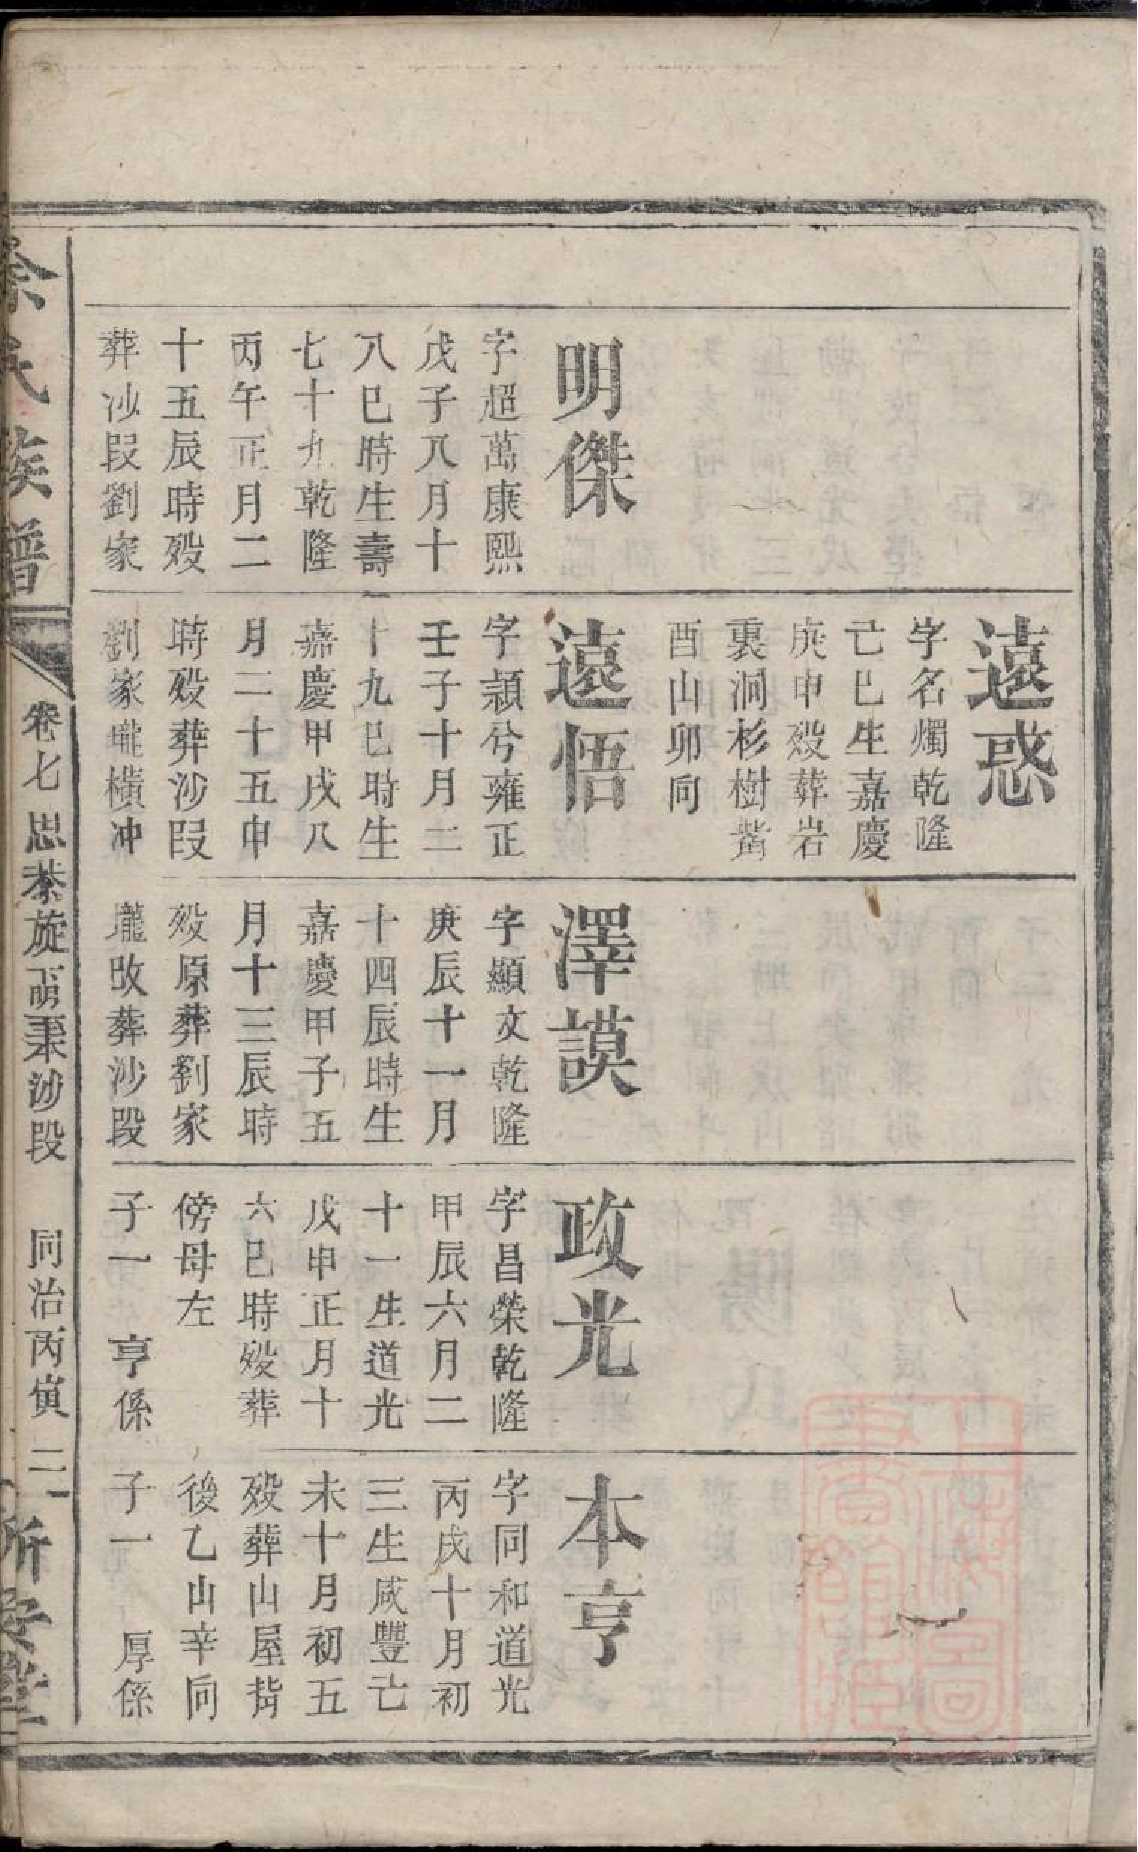 明傑
字超萬康熙
戊子八月十
八巳時生壽
七十九乾隆
丙午正月二
十五辰時歿
葬沙段劉家
遠惑
字名燭乾隆
己巳生嘉慶
庚申歿葬岩
裏洞杉樹
酉山卯向
遠悟
字頴兮雍正
壬子十月二
十九巳時生
嘉慶甲戌八
月二十五申
時歿葬沙段
劉家壠橫冲
澤謨
字顯文乾隆
庚辰十一月
十四辰時生
嘉慶甲子五
月十三辰時
歿原葬劉家
壠改葬沙段
政光
字昌榮乾隆
甲辰六月二
十一生道光
戊申正月十
六巳時歿葬
傍母左
子一 亨係
本亨
字同和道光
丙戌十月初
三生咸豐亡
未十月初五
歿葬山屋背
後乙山辛向
子一 厚係
徐氏族譜
卷七 思恭旋 秉沙段 同治丙寅 二 新安堂